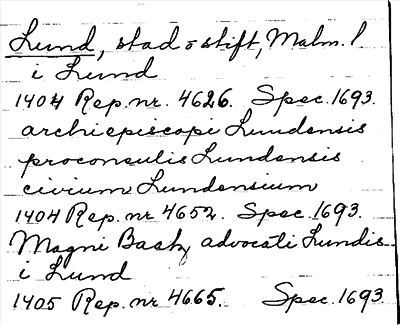 Lund, stad o stift, Malm. l.
i Lund
1404 Rep. nr. 4626. Spec. 1693.
archiepiscopi Lundensis
proconsulis Lundensis
civium Lundensium
1404 Rep. nr 4652. Spec. 1693.
Magni Bask, advocati Lundis
i Lund
1405 Rep. nr 4665. Spec. 1693